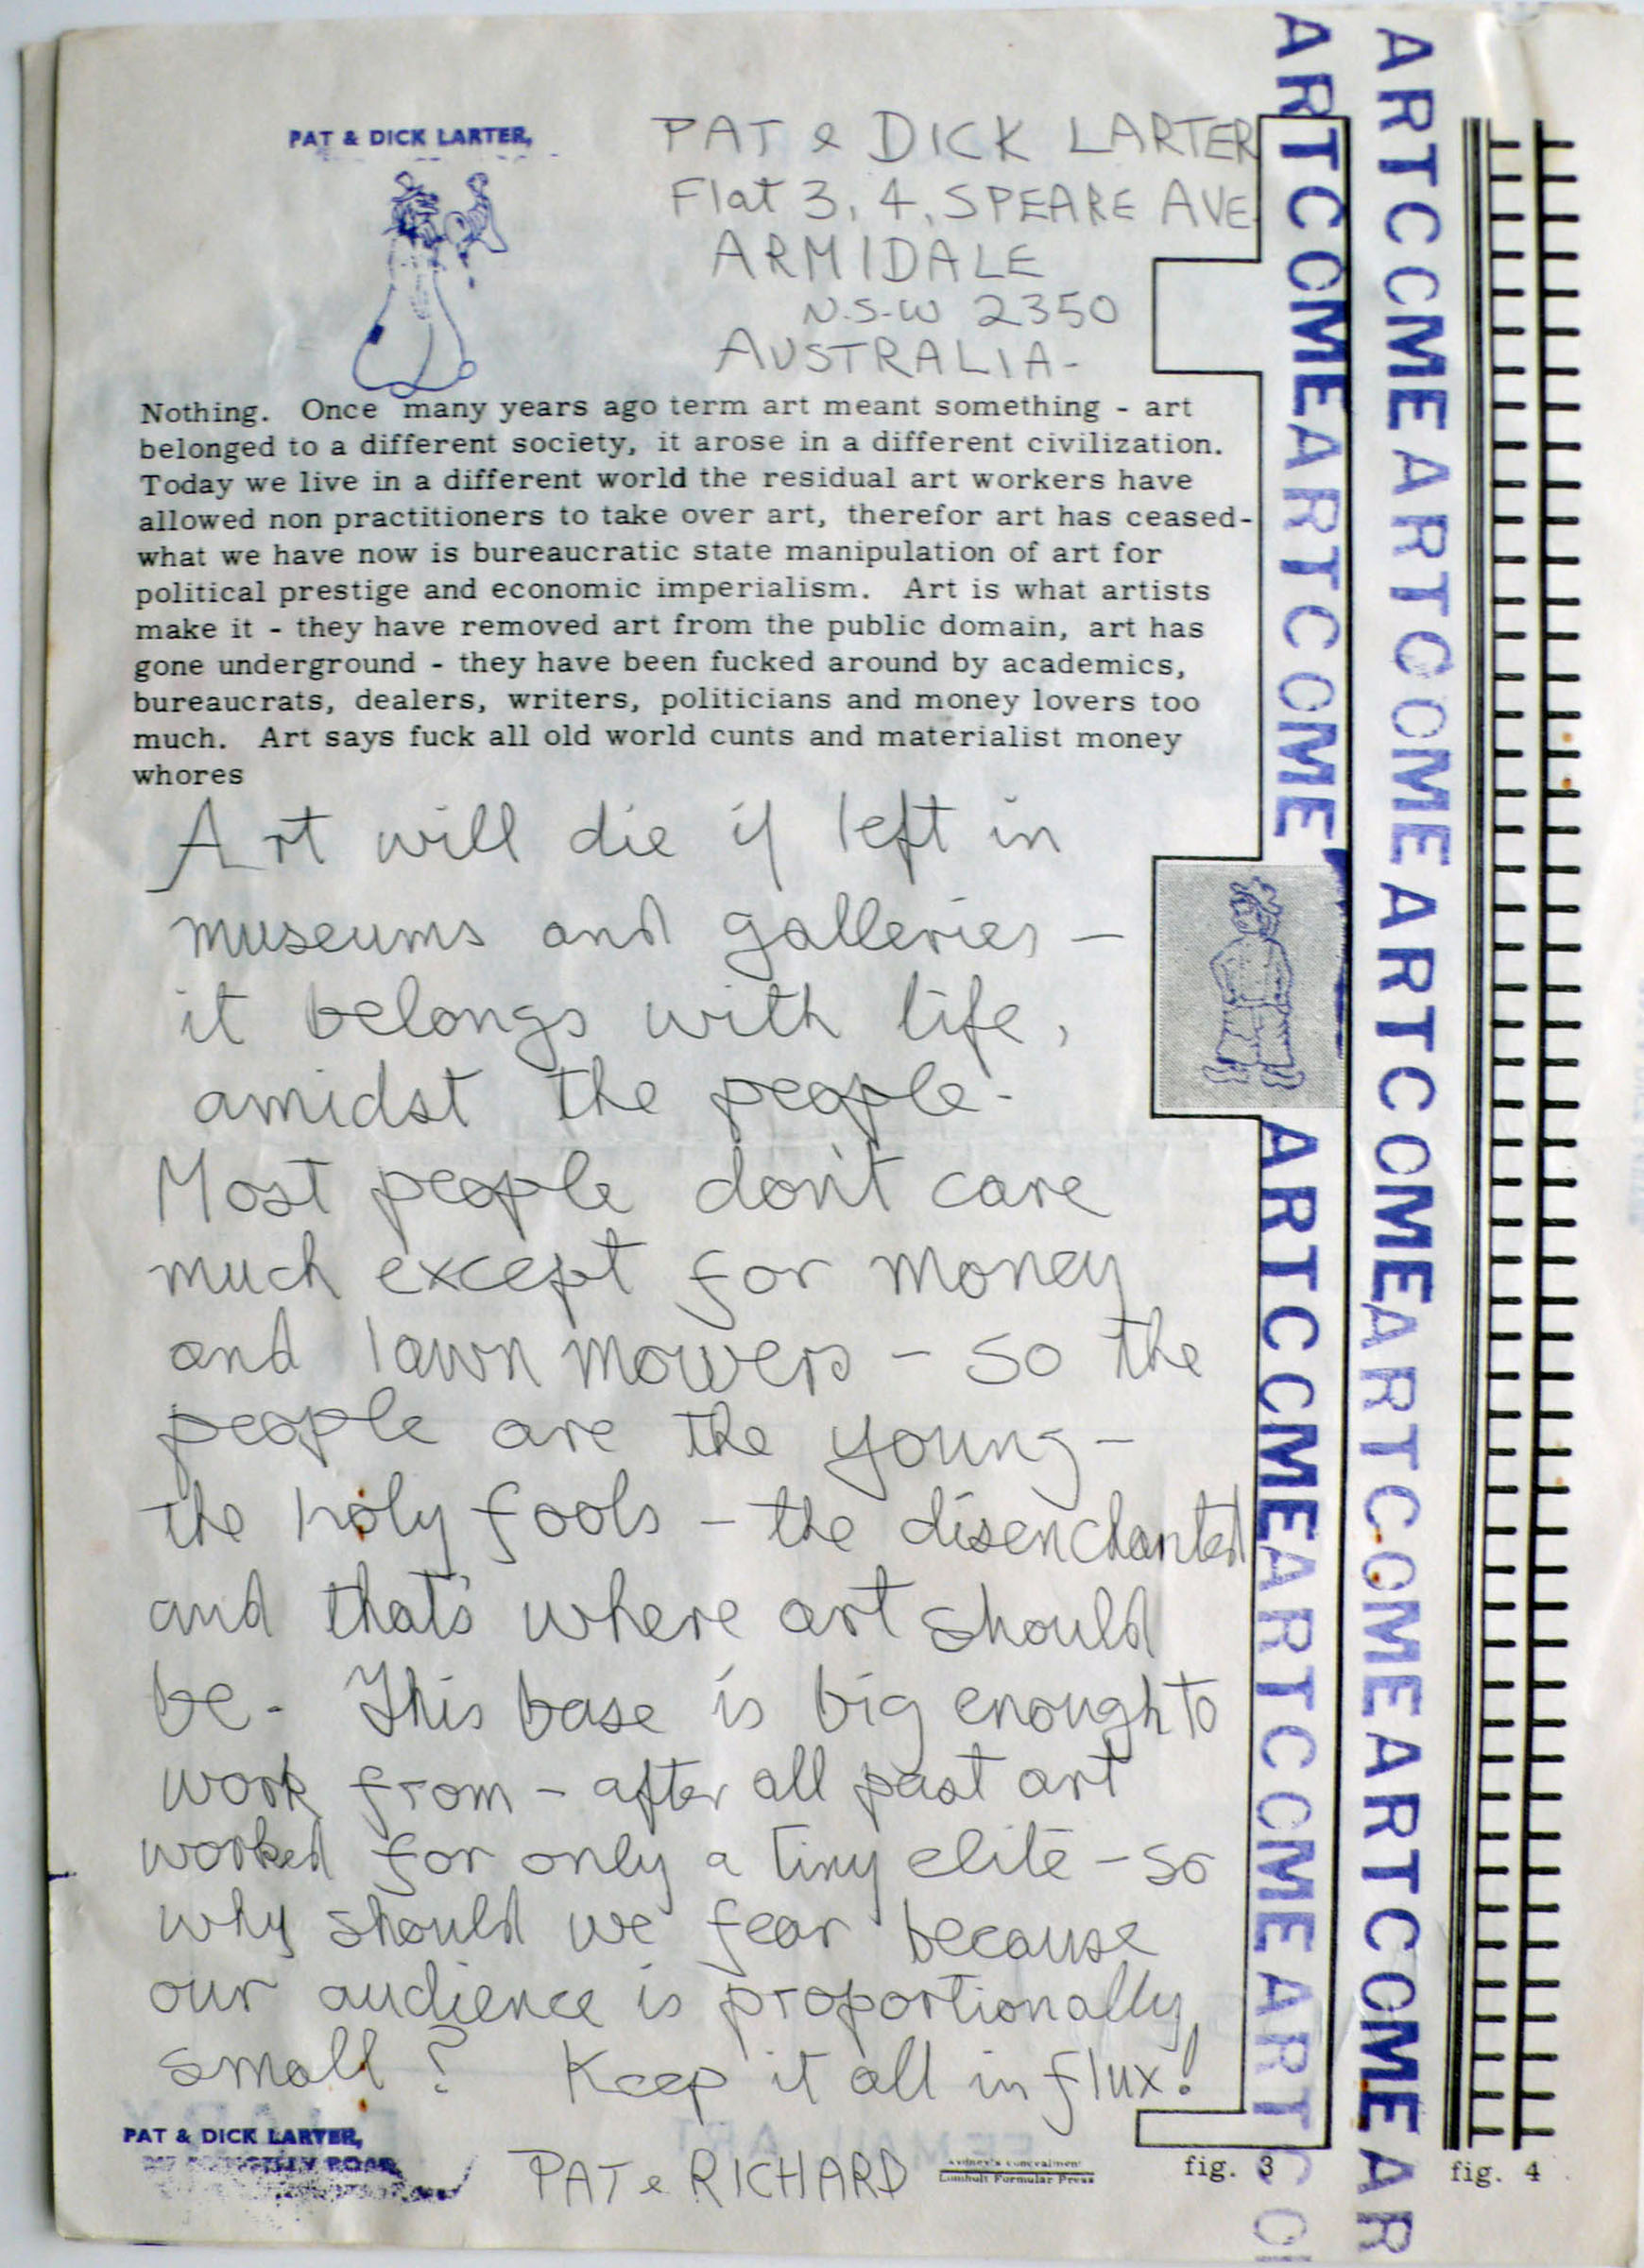 PAT & DICK LARTER,
PAT & DICK LARTER
Flat 3, 4, SPEARE AVE.
ARMIDALE
N.S.W 2350
AUSTRALIA-
Nothing. Once many years ago term art meant something - art
belonged to a different society, it arose in a different civilization.
Today we live in a different world the residual art workers have
allowed non practitioners to take over art, therefor art has ceased-
what we have now is bureaucratic state manipulation of art for
political prestige and economic imperialism. Art is what artists
make it - they have removed art from the public domain, art has
gone underground - they have been fucked around by academics,
bureaucrats, dealers, writers, politicians and money lovers too
much. Art says fuck all old world cunts and materialist money
whores
Art will die if left in
museums and galleries -
it belongs with life,
amidst the people-
Most people don't care
much except for money
and lawn mowers - so the
people are the young -
the holy fools - the disenchanted
and that's where art should
be. This base is big enough to
work from - after all past art
worked for only a tiny elite - so
why should we fear because
our audience is proportionally
small? Keep it all in flux!
PAT & DICK LARTER,
ROAD
PAT & RICHARD
Sydney's concealment
Lomholt Formular Press
fig. 3
fig. 4
ARTCOMEARTCOMEARTCOME
ARTCCMEARTCCMEARTCO
ARTCCMEARTCOMEARTCOMEARTCOMEARTCOMEAR